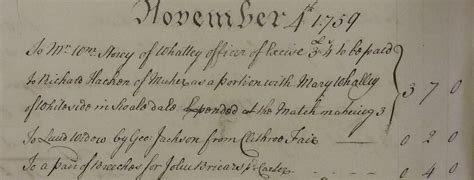 November 4th 1759
To Mr. Wm. Storey of Whalley officer of Excise £3 4 to be paid
to Richard Hacken of Muker as a portion with Mary Whally
of Whiteside in Swaledale Expended at the Match makeing 3 } 3 7 0
To Luid Widow by Geo: Jackson from Clithroe Fair 0 2 0
To a pair of Breeches for John Briears pd. Carter 0 4 0